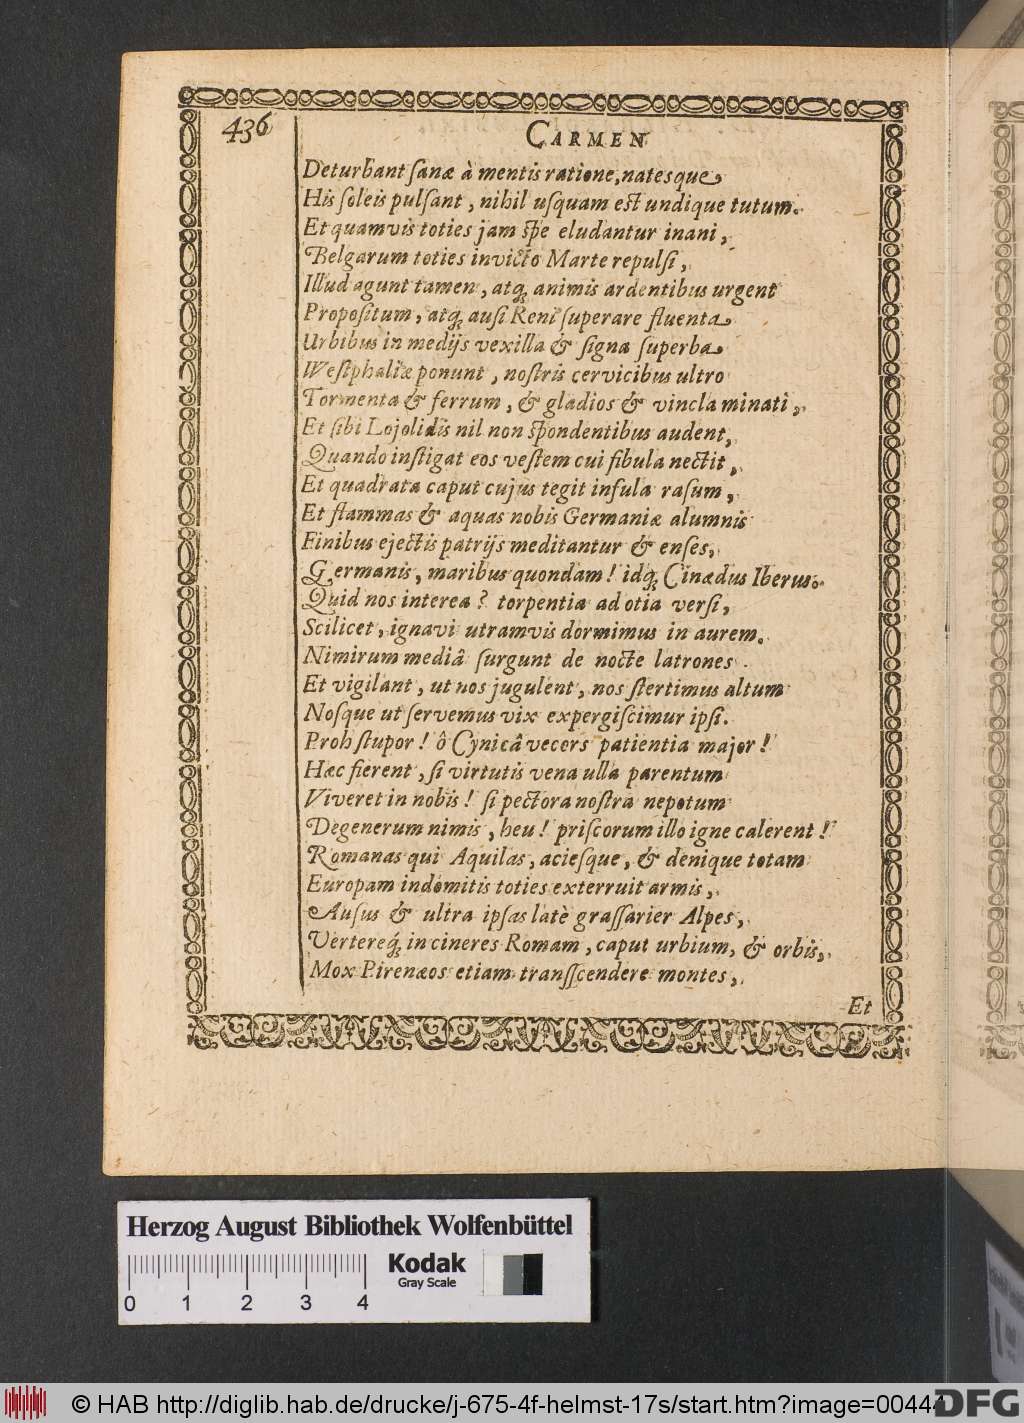 436
CARMEN
Deturbant sanæ à mentis ratione, natesque
His soleis pulsant, nihil usquam est undique tutum.
Et quamvis toties jam spe eludantur inani,
Belgarum toties invicto Marte repulsi,
Illud agunt tamen, atq; animis ardentibus urgent
Propositum, atq; ausi Reni superare fluenta
Urbibus in medijs vexilla & signa superba
Westphaliæ ponunt, nostris cervicibus ultro
Tormenta & ferrum, & gladios & vincla minati,
Et sibi Lojolidis nil non spondentibus audent,
Quando instigat eos vestem cui fibula nectit,
Et quadrata caput cujus tegit infula rasum,
Et flammas & aquas nobis Germaniæ alumnis
Finibus ejectis patrijs meditantur & enses,
Germanis, maribus quondam! idq; Cinædus Iberus.
Quid nos interea? torpentia ad otia versi,
Scilicet, ignavi utramvis dormimus in aurem.
Nimirum mediâ surgunt de nocte latrones.
Et vigilant, ut nos jugulent, nos stertimus altum
Nosque ut servemus vix expergiscimur ipsi.
Proh stupor! ô Cynicâ vecers patientia major!
Hæc fierent, si virtutis vena ulla parentum
Viveret in nobis! si pectora nostra nepotum
Degenerum nimis, heu! priscorum illo igne calerent!
Romanas qui Aquilas, aciesque, & denique totam
Europam indomitis toties exterruit armis,
Ausus & ultra ipsas latè grassarier Alpes,
Vertereq; in cineres Romam, caput urbium, & orbis,
Mox Pirenæos etiam transscendere montes,
Et
Herzog August Bibliothek Wolfenbüttel
Kodak
Gray Scale
0 1 2 3 4
© HAB http://diglib.hab.de/drucke/j-675-4f-helmst-17s/start.htm?image=00444
DFG